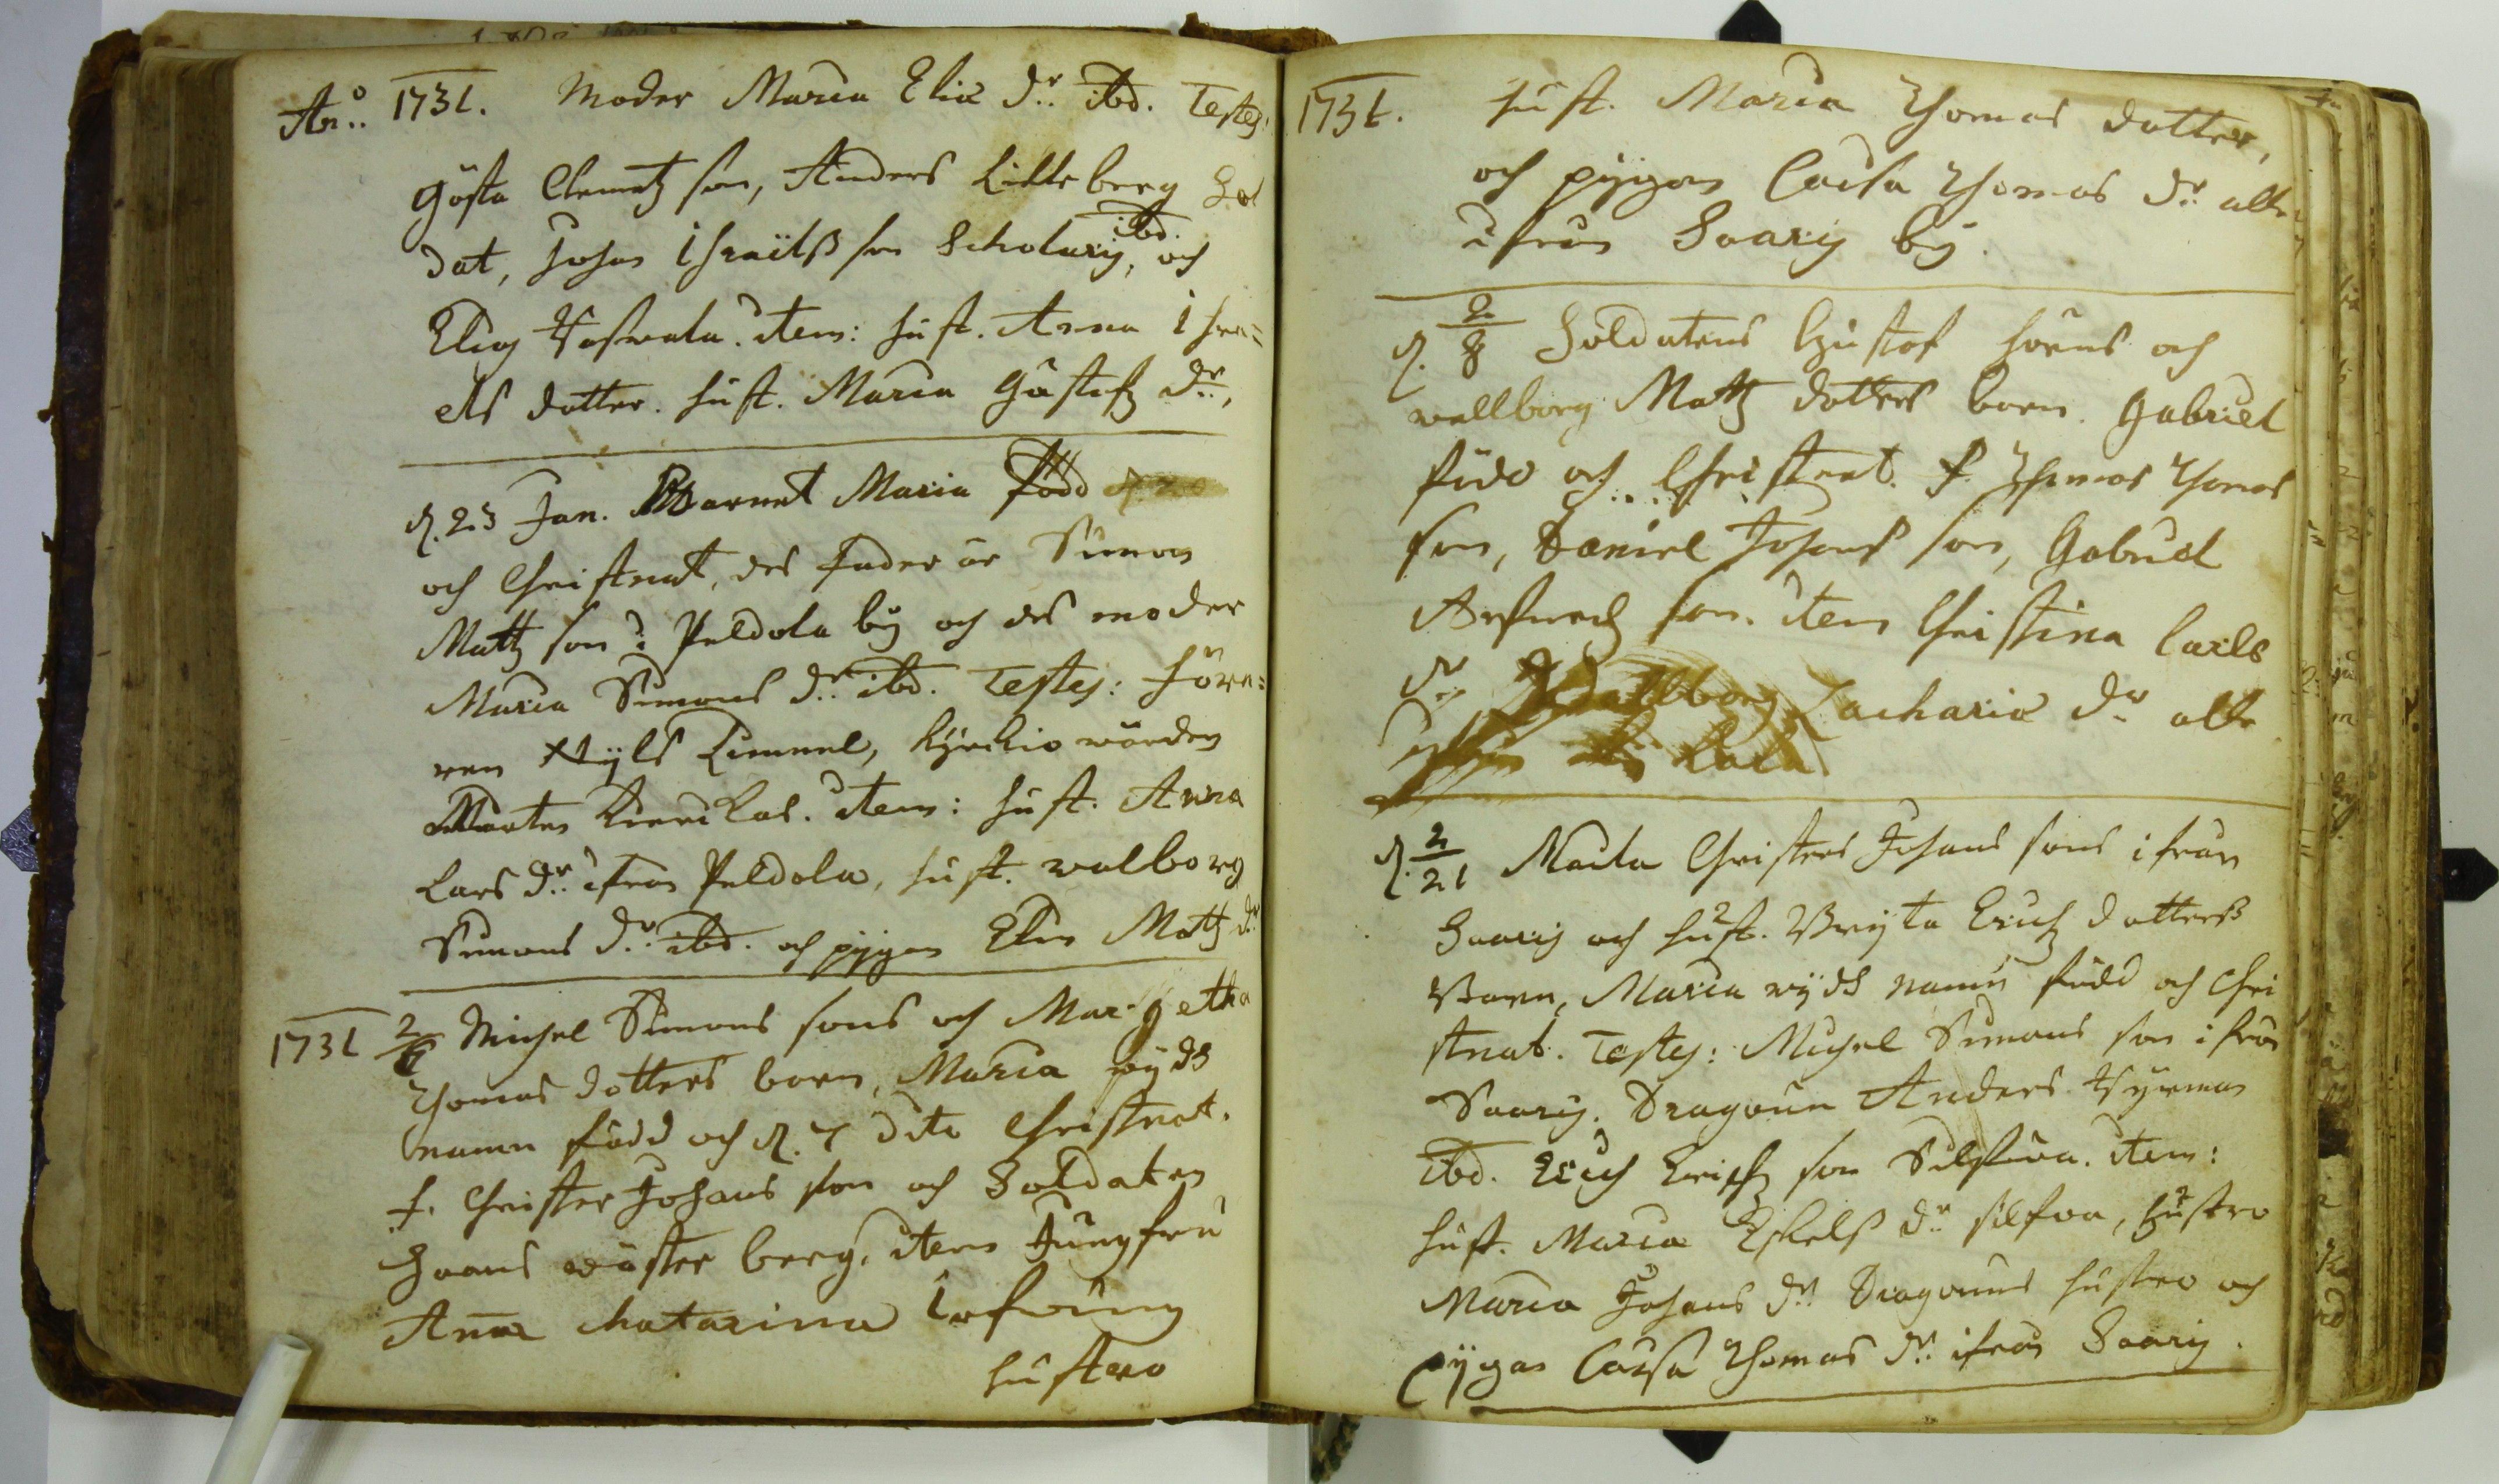 An:o 1731. Moder Maria Eliæ dr. ibd. Testes:
Gösta Clemetz son, Anders Lilleberg Sol
dat, Johan Israëlß son Scholaris, ibd. och
Elias item: hust. Anna Isra=
els dotter. hust. Maria Gustafz dr.,
d. 23 Jan. Barnet Maria född
och Christnat, des fader är Simon
Mattz son i Peldola by och des moder
Maria Simons dr. ibd. Testes: före=
ren Nijls Limnel, Kyrckio wärden
Marten item: hust. Anna
Lars dr. ifrån Peldola, hust. walborg
Simons dr. ibd. och pijgan Elin Mattz dr.
1731 2/6 Michel Simons sons och Margetha
Thomas dotters barn, Maria wijds
namn född och d. 7 dito Christnat.
f. Christer Johans son och Soldaten
Hans wäster berg, item Jungfru
Anna Catarina
hustro
1731. hust. Maria Thomas dotter,
och pijgan Caisa Thomas dr. alle
ifrån Saaris by.
d. 2/8 Soldatens Gustaf hörns och
wallborg Mattz dotters barn. Gabriel
född och Christnat. f. Thomas Thomas
son, Daniel Johans son, Gabriel
son. item Christina Carls
dr. Wallborg Zachariæ dr. alle
d. 2/21 Maita Christers Johans sons ifrån
Saaris och hust. Brijta Erichz dotterß
Barn, Maria wijds namn född och Chri
stnat. Testes: Michel Simons son ifrån
Saaris. Dragoun Anders
ibd. Erich Erichz son item:
hust. Maria Eskelß dr. hustro
Maria Johans dr. Dragouns hustro och
pijgan Caisa Thomas dr. ifrån Saaris.